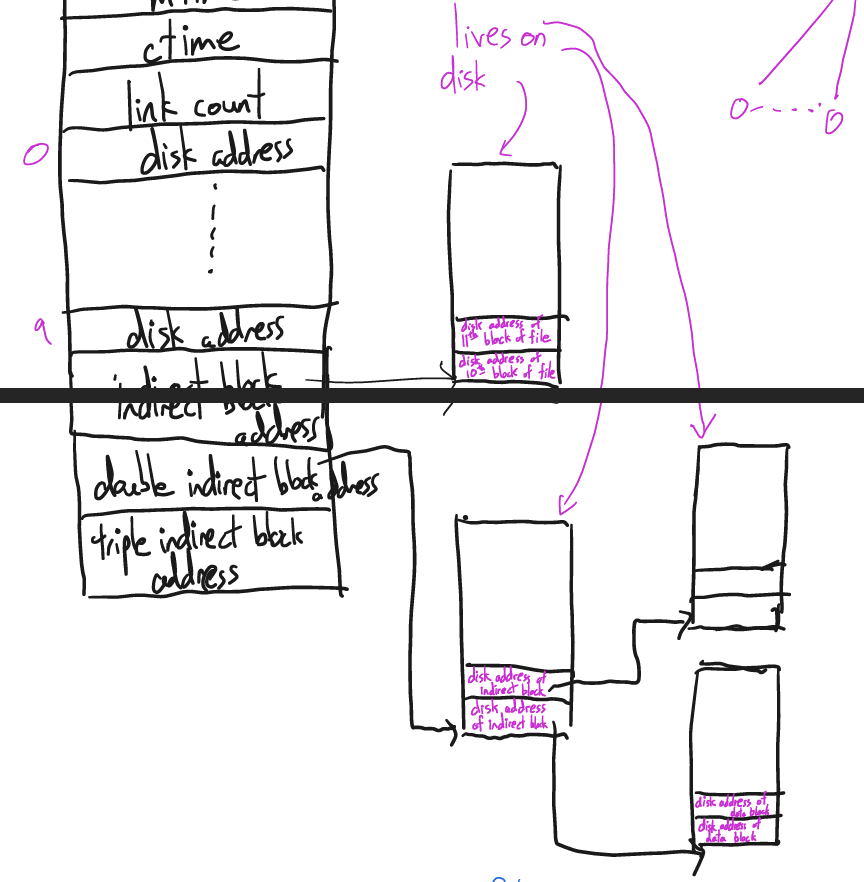 ctime
link count
0
disk address
9
disk address
indirect block
address
double indirect block
address
triple indirect block
address
lives on
disk
0-----0
disk address of
11th block of file
disk address of
10th block of file
disk address of
indirect block
disk address
of indirect block
disk address of
data block
disk address of
data block